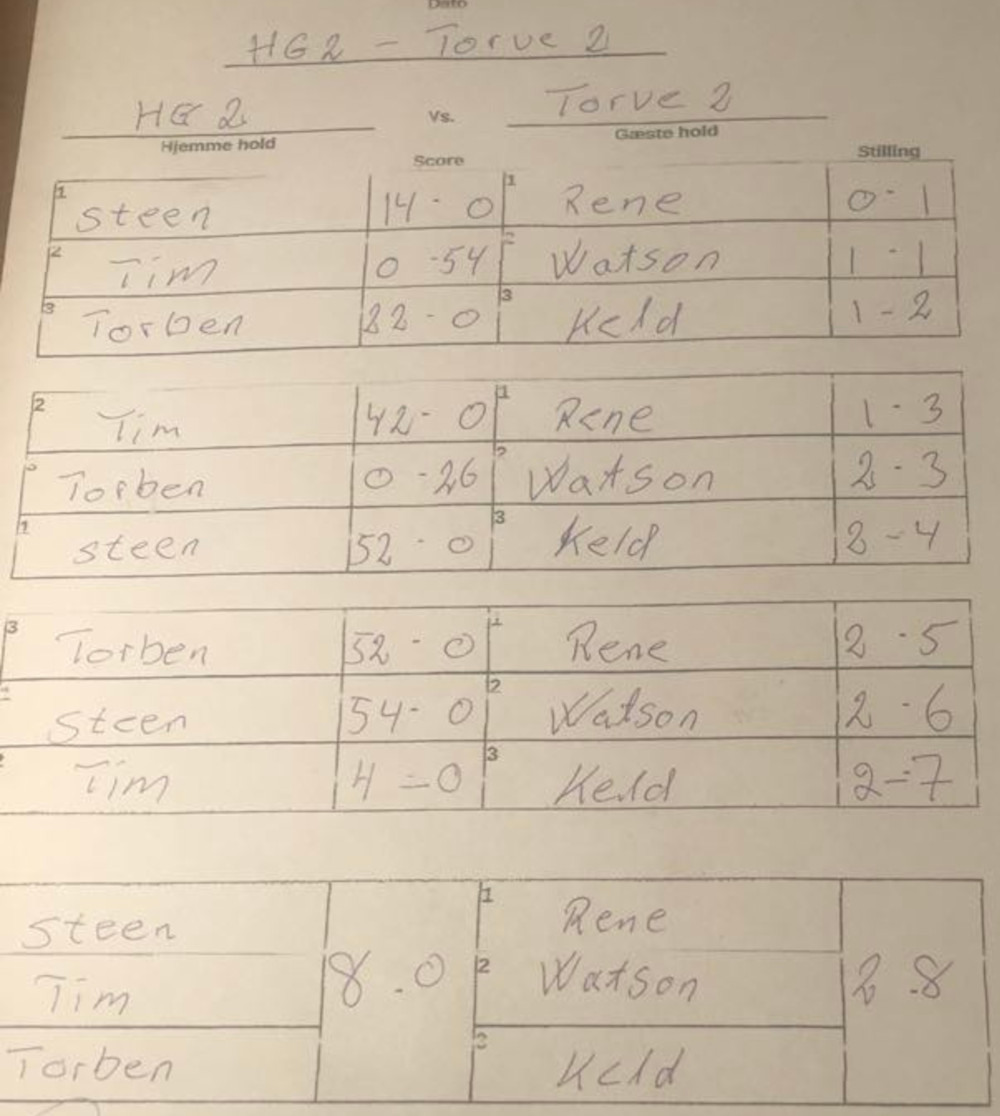 Dato
HG2 - Torve 2
HG 2 Vs. Torve 2
Hjemme hold Gæste hold
Score Stilling
1 Steen 14 - 0 1 Rene 0 - 1
2 Tim 0 - 54 2 Watson 1 - 1
3 Torben 22 - 0 3 Keld 1 - 2
2 Tim 42 - 0 1 Rene 1 - 3
3 Torben 0 - 26 2 Watson 2 - 3
1 steen 52 - 0 3 Keld 2 - 4
3 Torben 52 - 0 1 Rene 2 - 5
1 Steen 54 - 0 2 Watson 2 - 6
2 Tim 4 - 0 3 Keld 2 - 7
Steen 1 Rene
Tim 8 . 0 2 Watson 2 . 8
Torben 3 Keld